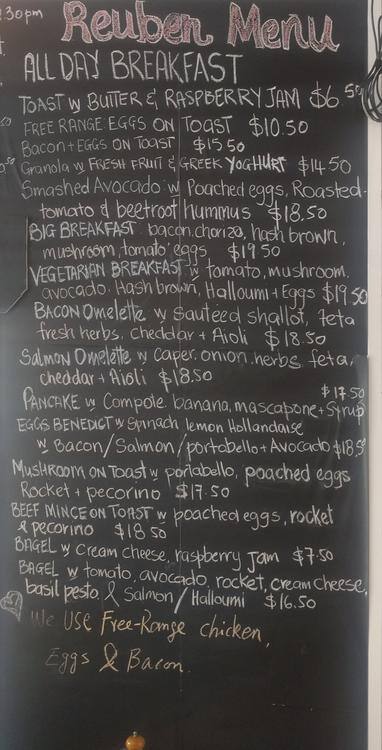 .30pm
Reuben Menu
ALL DAY BREAKFAST
TOAST w BUTTER & RASPBERRY JAM $6.50
FREE RANGE EGGS ON TOAST $10.50
Bacon + EGGS ON TOAST $15.50
Granola w FRESH FRUIT & GREEK YOGHURT $14.50
Smashed Avocado w Poached eggs, Roasted
tomato & beetroot hummus $18.50
BIG BREAKFAST bacon, chorizo, hash brown,
mushroom, tomato, eggs $19.50
VEGETARIAN BREAKFAST w tomato, mushroom,
avocado, Hash brown, Halloumi + Eggs $19.50
BACON Omelette w Sauteed shallot, feta
fresh herbs, cheddar + Aioli $18.50
Salmon Omelette w caper, onion, herbs, feta,
cheddar + Aioli $18.50
$17.50
PANCAKE w Compole banana, mascapone + Strup
EGGS BENEDICT w Spinach lemon Hollandaise
w Bacon/Salmon/portobello + Avocado $18.5
MUSHROOM ON TOAST w portabello, poached eggs
Rocket + pecorino $17.50
BEEF MINCE ON TOAST w poached eggs, rocket
& pecorino $18.50
BAGEL w cream cheese, raspberry Jam $7.50
BAGEL w tomato, avocado, rocket, cream cheese,
basil pesto & Salmon/Halloumi $16.50
We Use Free-Range chicken,
Eggs & Bacon.